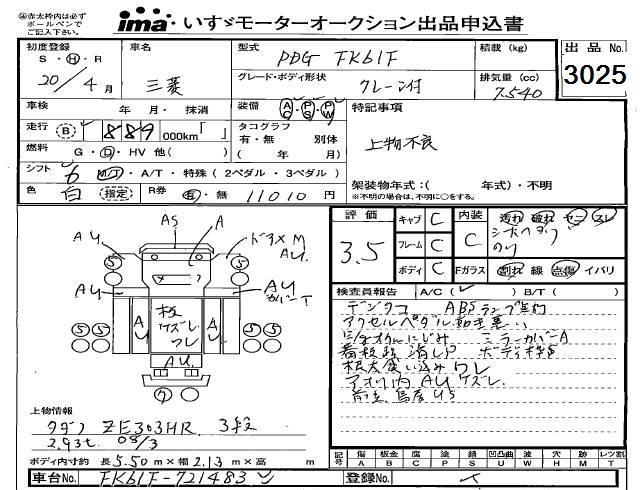 △赤太枠内は必ず
ボールペンで
ご記入下さい。
ima いすゞモーターオークション出品申込書
初度登録 車名 型式 PDG FK61F 積載 (kg) 出品 No.
S・H・R グレード・ボディ形状 クレーン付 排気量 (cc) 3025
20/4月 三菱 7.540
車検 年 月・抹消 装備 AC・PS・PW 特記事項
走行 B 889 000km「 」 タコグラフ 有・無 別体 上物不良
燃料 G・D・HV 他( ) ( 年 月)
シフト 6 M/T・A/T・特殊 (2ペダル・3ペダル) 架装物年式:( 年式)・不明
色 白 指定 R券 有・無 11010 円 (※不明の場合は、不明に○をする。)
評価 3.5 キャブ C 内装 C 汚れ 破れ ヤニ スレ
フレーム C シートヘタリ
ボディ C Fガラス 割れ 線 点傷 イバリ
検査員報告 A/C( ) B/T( )
デジタコ ABSランプ点灯
アクセルペダル動き悪い
オイルにじみ ミラーカバーA
看板跡消しP ボディ枠S
根太食い込み ワレ
アオリ内 AU ケズレ
AS A ドアメM AU
AU AU
AU カバーT
板 ケズレ ワレ
A A
AU
5 5 5 5 5 5
上物情報
タダノ ZE303HR 3段
2.93t 08/3
ボディ内寸約 長5.50m×幅2.13m×高 m
記号 傷 A 板金 B 腐 C 塗 P 錆 S 凹凸曲 U 波 W 穴 H 跡 M レツ割 T
車台No. FK61F-721483 登録No.